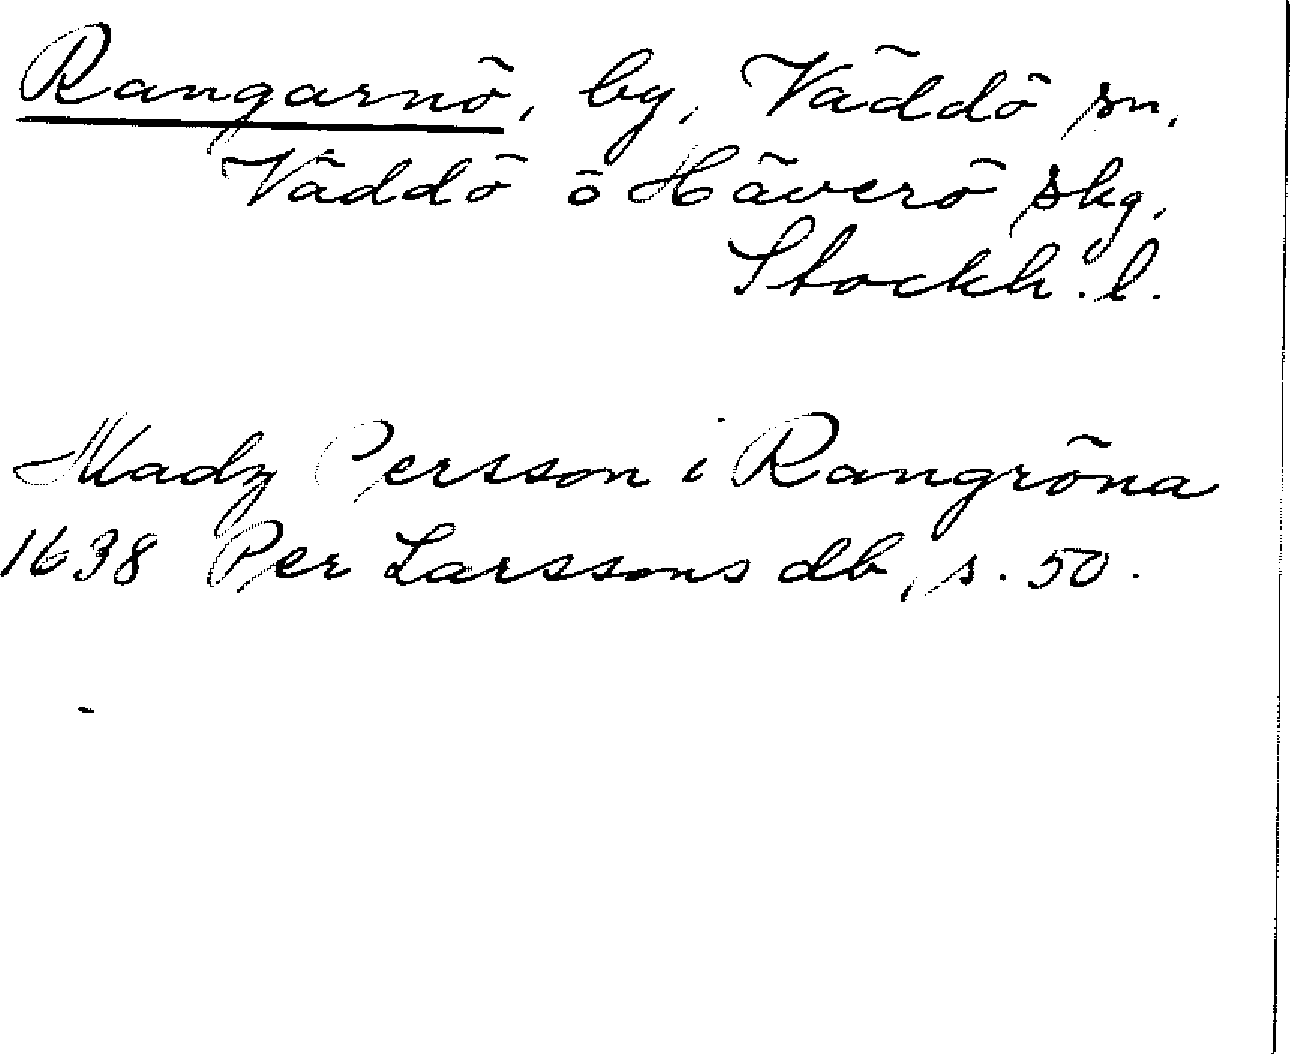 Rangarnö, by, Väddö sn,
Väddö o Häverö skg,
Stockh. l.
Madz Persson i Rangröna
1638 Per Larssons db, s. 50.